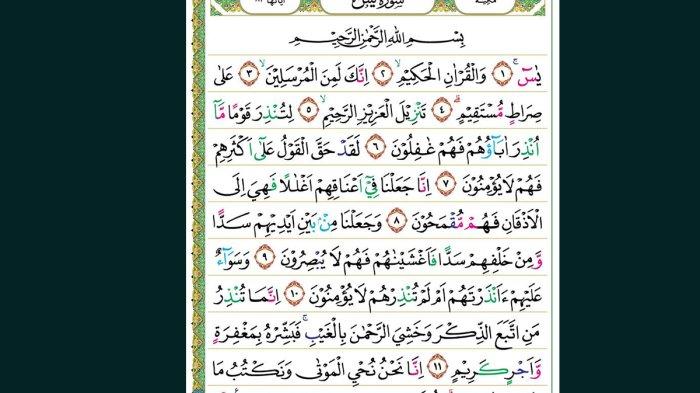 سُوْرَةُ يٰسٓ
بِسْمِ اللّٰهِ الرَّحْمٰنِ الرَّحِيْمِ
يٰسٓ ۚ ﴿١﴾ وَالْقُرْاٰنِ الْحَكِيْمِ ۙ ﴿٢﴾ اِنَّكَ لَمِنَ الْمُرْسَلِيْنَ ۙ ﴿٣﴾ عَلٰى
صِرَاطٍ مُّسْتَقِيْمٍ ۗ ﴿٤﴾ تَنْزِيْلَ الْعَزِيْزِ الرَّحِيْمِ ۙ ﴿٥﴾ لِتُنْذِرَ قَوْمًا مَّآ
اُنْذِرَ اٰبَاۤؤُهُمْ فَهُمْ غٰفِلُوْنَ ﴿٦﴾ لَقَدْ حَقَّ الْقَوْلُ عَلٰٓى اَكْثَرِهِمْ
فَهُمْ لَا يُؤْمِنُوْنَ ﴿٧﴾ اِنَّا جَعَلْنَا فِيْٓ اَعْنَاقِهِمْ اَغْلٰلًا فَهِيَ اِلَى
الْاَذْقَانِ فَهُمْ مُّقْمَحُوْنَ ﴿٨﴾ وَجَعَلْنَا مِنْۢ بَيْنِ اَيْدِيْهِمْ سَدًّا
وَّمِنْ خَلْفِهِمْ سَدًّا فَاَغْشَيْنٰهُمْ فَهُمْ لَا يُبْصِرُوْنَ ﴿٩﴾ وَسَوَاۤءٌ
عَلَيْهِمْ ءَاَنْذَرْتَهُمْ اَمْ لَمْ تُنْذِرْهُمْ لَا يُؤْمِنُوْنَ ﴿١٠﴾ اِنَّمَا تُنْذِرُ
مَنِ اتَّبَعَ الذِّكْرَ وَخَشِيَ الرَّحْمٰنَ بِالْغَيْبِ ۚ فَبَشِّرْهُ بِمَغْفِرَةٍ
وَّاَجْرٍ كَرِيْمٍ ﴿١١﴾ اِنَّا نَحْنُ نُحْيِ الْمَوْتٰى وَنَكْتُبُ مَا